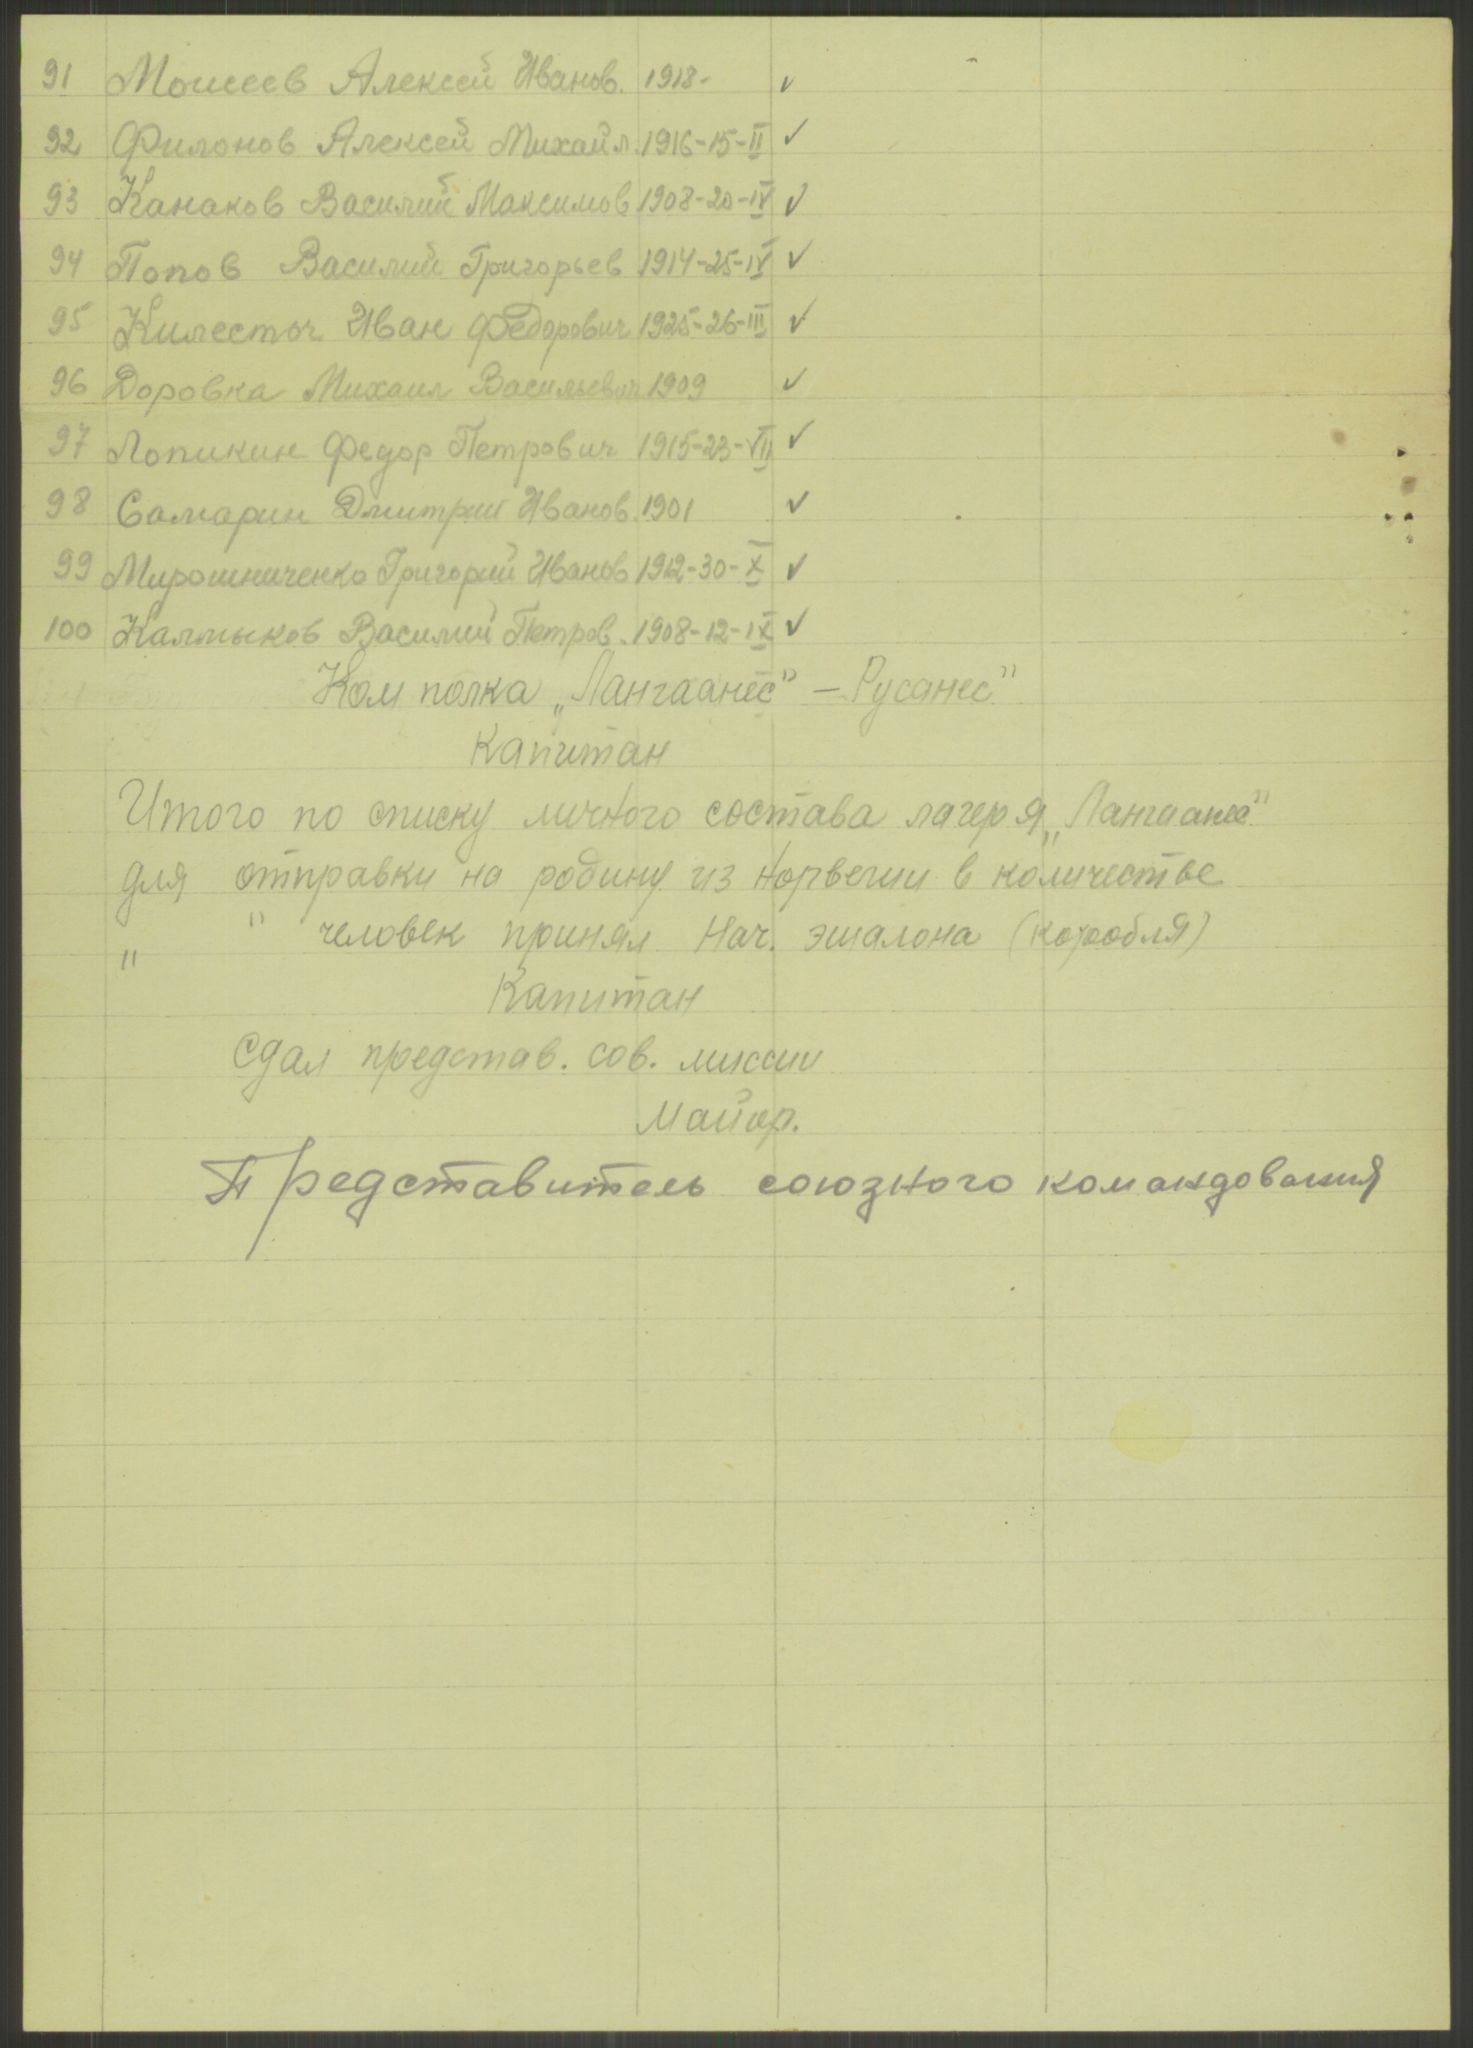 91 Моисеев Алексей Иванов. 1918- ✓
92 Филонов Алексей Михайл. 1916-15-II ✓
93 Канаков Василий Максимов 1908-20-IV ✓
94 Попов Василий Григорьев 1914-25-IV ✓
95 Килесточ Иван Федорович 1925-26-III ✓
96 Доровка Михаил Васильевич 1909 ✓
97 Лопикин Федор Петрович 1915-23-VII ✓
98 Самарин Дмитрий Иванов. 1901 ✓
99 Мирошниченко Григорий Иванов 1912-30-X ✓
100 Калмыков Василий Петров. 1908-12-IX ✓
Ком полка „Лангаанес" – Русанес"
Капитан
Итого по списку личного состава лагеря „Лангаанес"
для отправки на родину из Норвегии в количестве
" " человек принял Нач. эшалона (коробля)
Капитан
Сдал представ. сов. миссии
Майор.
Представитель союзного командования